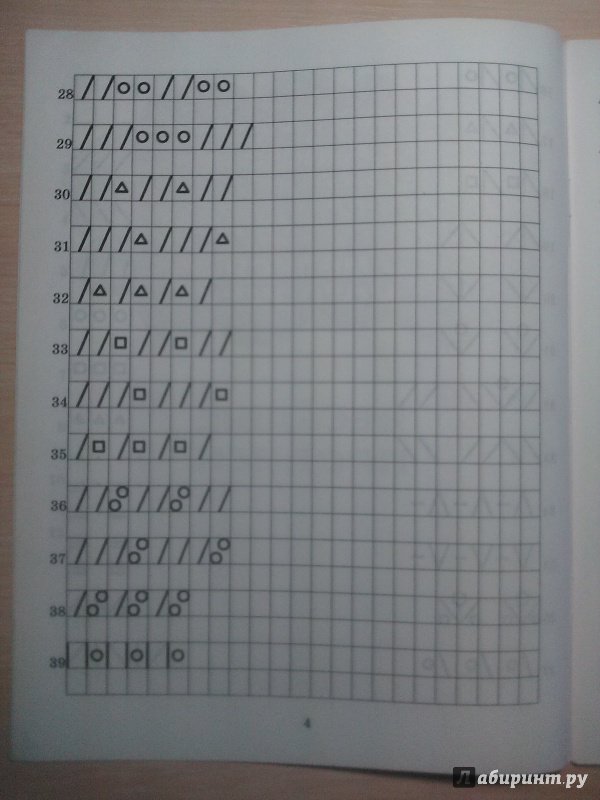 28
29
30
31
32
33
34
35
36
37
38
39
4
Лабиринт.ру